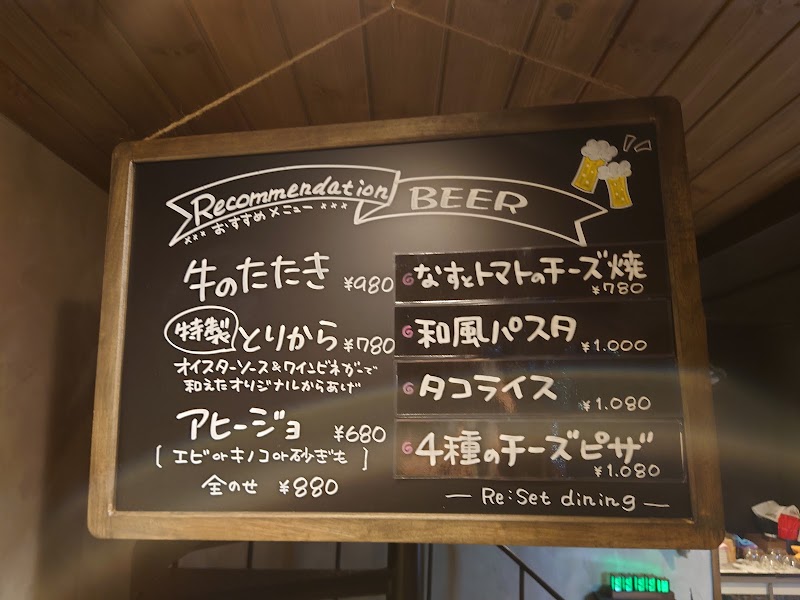 Recommendation BEER
××× おすすめメニュー ×××
牛のたたき ¥980
特製 とりから ¥780
オイスターソース&ワインビネガーで
和えたオリジナルからあげ
アヒージョ ¥680
[ エビorキノコor砂ぎも ]
全のせ ¥880
なすとトマトのチーズ焼 ¥780
和風パスタ ¥1.000
タコライス ¥1.080
4種のチーズピザ ¥1.080
— Re:Set dining —